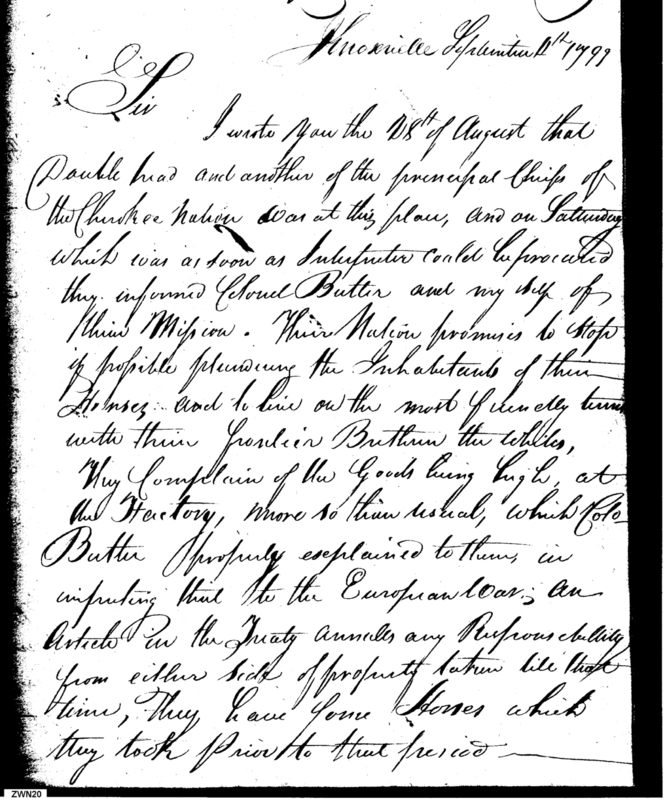 Knoxville September 11th 1799
Sir
I wrote you the 28th of August that
Double head and another of the principal Chiefs of
the Cherokee Nation was at this place, and on Satturday
which was as soon as Interpreter could be procured
they informed Colonel Butler and my self of
their Mission. Their Nation promises to stop
if possible plundering the Inhabitants of their
Horses and to live on the most friendly terms
with their frontier Brethren the whites,
They Complain of the Goods being high, at
the Factory, more so than usual, which Colo
Butler properly explained to them, in
imputing that to the European War; an
Article in the Treaty annulls any Responsibility
from either side of property taken till that
time, They have some Horses which
they took Prior to that period
ZWN20